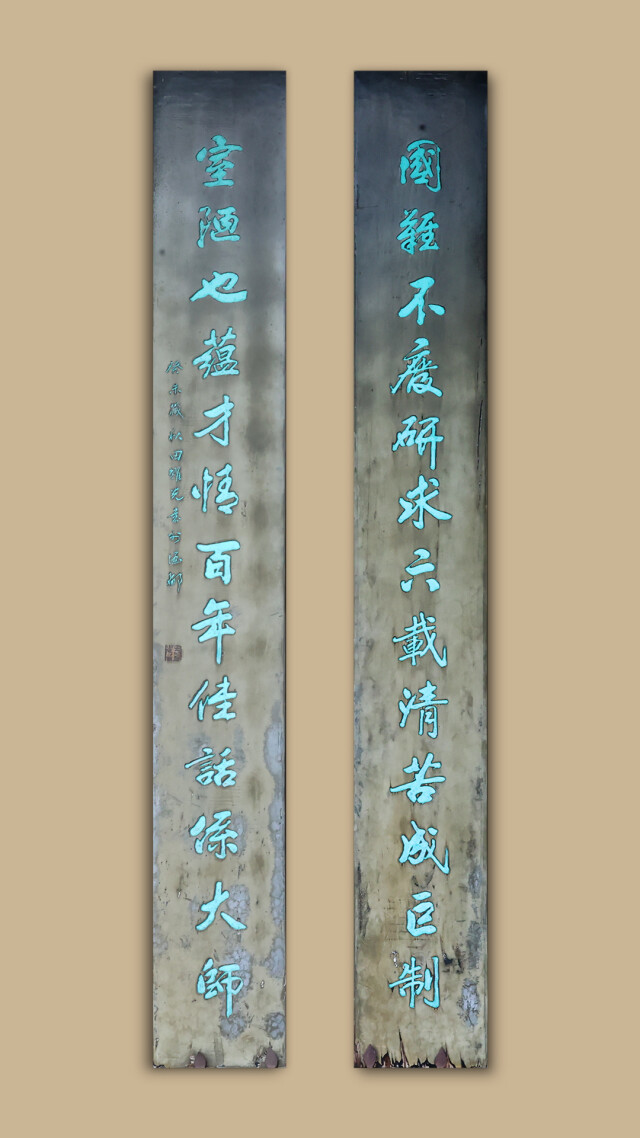 國難不廢研求六載清苦成巨制
室陋也蘊才情百年佳話係大師